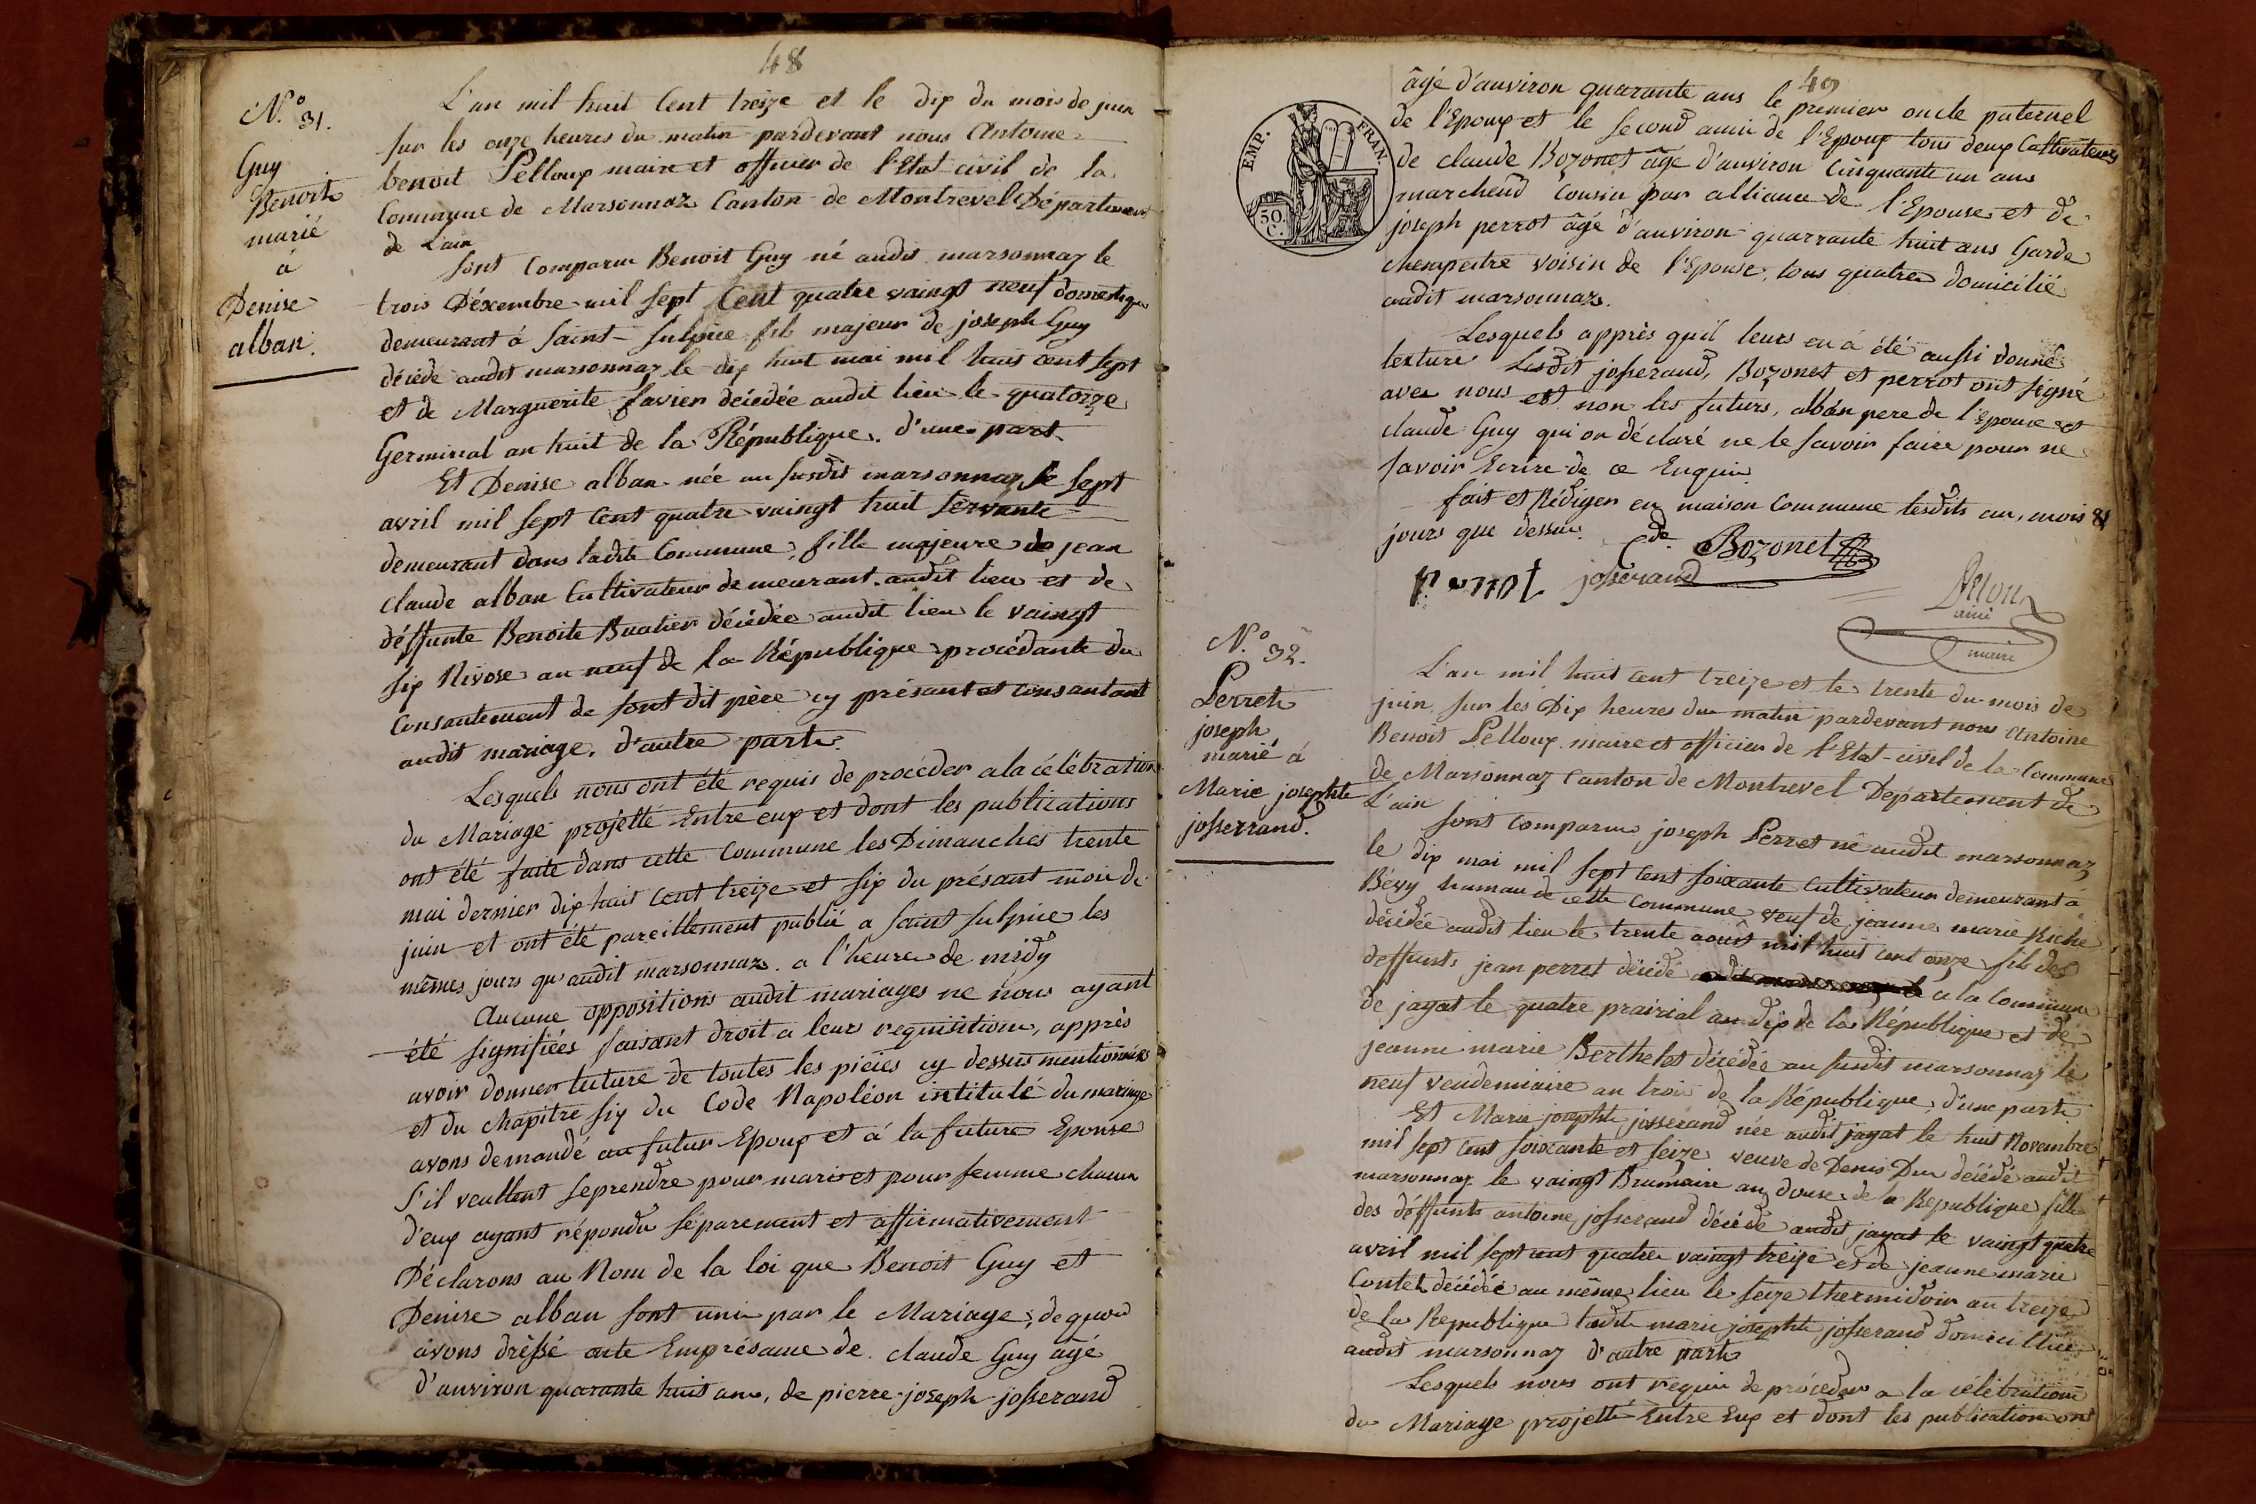 48
N.º 31.
Guy
Benoit
marié
à
Denise
alban.
L'an mil huit Cent treize et le dix du mois de juin
sur les onze heures du matin pardevant nous Antoine
benoit Pelloux maire et officier de l'Etat-civil de la
Commune de Marsonnaz Canton de Montrevel Département
de L'ain
sont Comparu Benoit Guy né audit marsonnaz le
trois Déxembre mil sept Cent quatre vaingt neuf domestique
demeurant à Saint-Sulpice fils majeur de joseph Guy
décédé audit marsonnaz le dix huit mai mil huit cent sept
et de Marguerite favier décédée audit lieu le quatorze
Germinal an huit de la République. d'une part.
Et Denise alban née au susdit marsonnaz le sept
avril mil sept Cent quatre vaingt huit servante
demeurant dans ladite Commune, fille majeure de jean
claude alban Cultivateur demeurant audit lieu et de
déffunte Benoite Buatier décédée audit lieu le vaingt
six Nivose an neuf de la République procédante du
Consantement de sont dit père cy présant et consantant
audit mariage, d'autre part.
Lesquels nous ont été requis de procéder a la célébration
du Mariage projetté Entre eux et dont les publications
ont été faite dans cette Commune les Dimanches trente
mai dernier dix huit cent treize et six du présant mois de
juin et ont été pareillement publié a saint sulpice les
mêmes jours qu'audit marsonnaz. a l'heure de midy
Aucune oppositions audit mariages ne nous ayant
été signifiées faisant droit a leur requisitions, apprès
avoir donner luture de toutes les pièces cy dessus mentionnées
et du chapitre six du Code Napoléon intitulé du mariage
avons demandé au futur Epoux et á la future Epouse
s'il veullent se prendre pour mari et pour femme chacun
d'eux ayant répondu séparement et affirmativement
Déclarons au Nom de la loi que Benoit Guy et
Denise alban sont uni par le Mariage; de quoi
avons drèssé acte Emprésance de claude Guy âgé
d'anviron quarante huit ans, de pierre-joseph josserand
49
EMP. FRAN.
50 C.
âgé d'anviron quarante ans le premier oncle paternel
de l'Epoux et le second ami de l'Epoux tous deux Cultivateurs
de claude Bozonet âgé d'anviron Cinquante un ans
marchend Cousin par alliance de l'Epouse et de
joseph perrot âgé d'anviron quarrante huit ans Garde
chempetre voisin de l'Epouse, tous quatre domicilié
audit marsonnaz.
Lesquels apprès qu'il leurs en à été aussi donné
lexture Lesdit josserand, Bozonet et perrot ont signé
avec nous et non les futurs, albán pere de l'Epouse et
claude Guy qui on déclaré ne le savoir faire pour ne
savoir Ecrire de ce Enquis.
fait et Rédiger en maison Commune lesdits an, mois &
jours que dessus.
Cde Bozonet
Perrot josserand
Pelloux
ainé
maire
N.º 32.
Perret
joseph
marié à
Marie josephte
josserrand.
L'an mil huit cent treize et le trente du mois de
juin sur les Dix heures du matin pardevant nous Antoine
Benoit Pelloux maire et officier de l'Etat-civil de la Commune
de Marsonnaz Canton de Montrevel Departement de
L'ain
sont Comparu joseph Perret né audit marsonnaz
le dix mai mil sept cent soixante cultivateur demeurant à
Bévy hamau de cette Commune veuf de jeanne marie Riche
décédée audit lieu le trente août mil huit cent onze fils des
deffunts jean perret décédé a la Commune
de jayat le quatre prairial an dix de la République et de
jeanne marie Berthelet décédée au susdit marsonnaz le
neuf vendemiaire an trois de la République, d'une part.
Et Marie josephte josserand née audit jayat le huit Novembre
mil sept cent soixante et seize veuve de Denis Duc décédé audit
marsonnaz le vaingt Brumaire an douse de la République fille
des déffunts antoine josserand décédé audit jayat le vaingt quatre
avril mil sept cent quatre vaingt treize et de jeanne marie
Contet décédée au même lieu le seize thermidoir an treize
de la Republique ladite marie josephte josserand domicilliée
audit marsonnaz d'autre part.
Lesquels nous ont requis de procéder a la célébration
du Mariage projetté Entre Eux et dont les publication ont